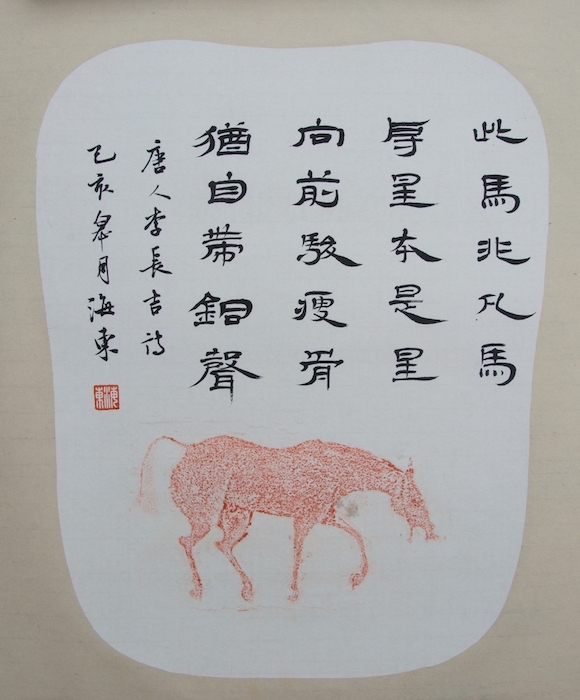 此馬非凡馬
房星本是星
向前駿瘦骨
猶自帶銅聲
唐人李長吉詩
己亥皋月海東
海東